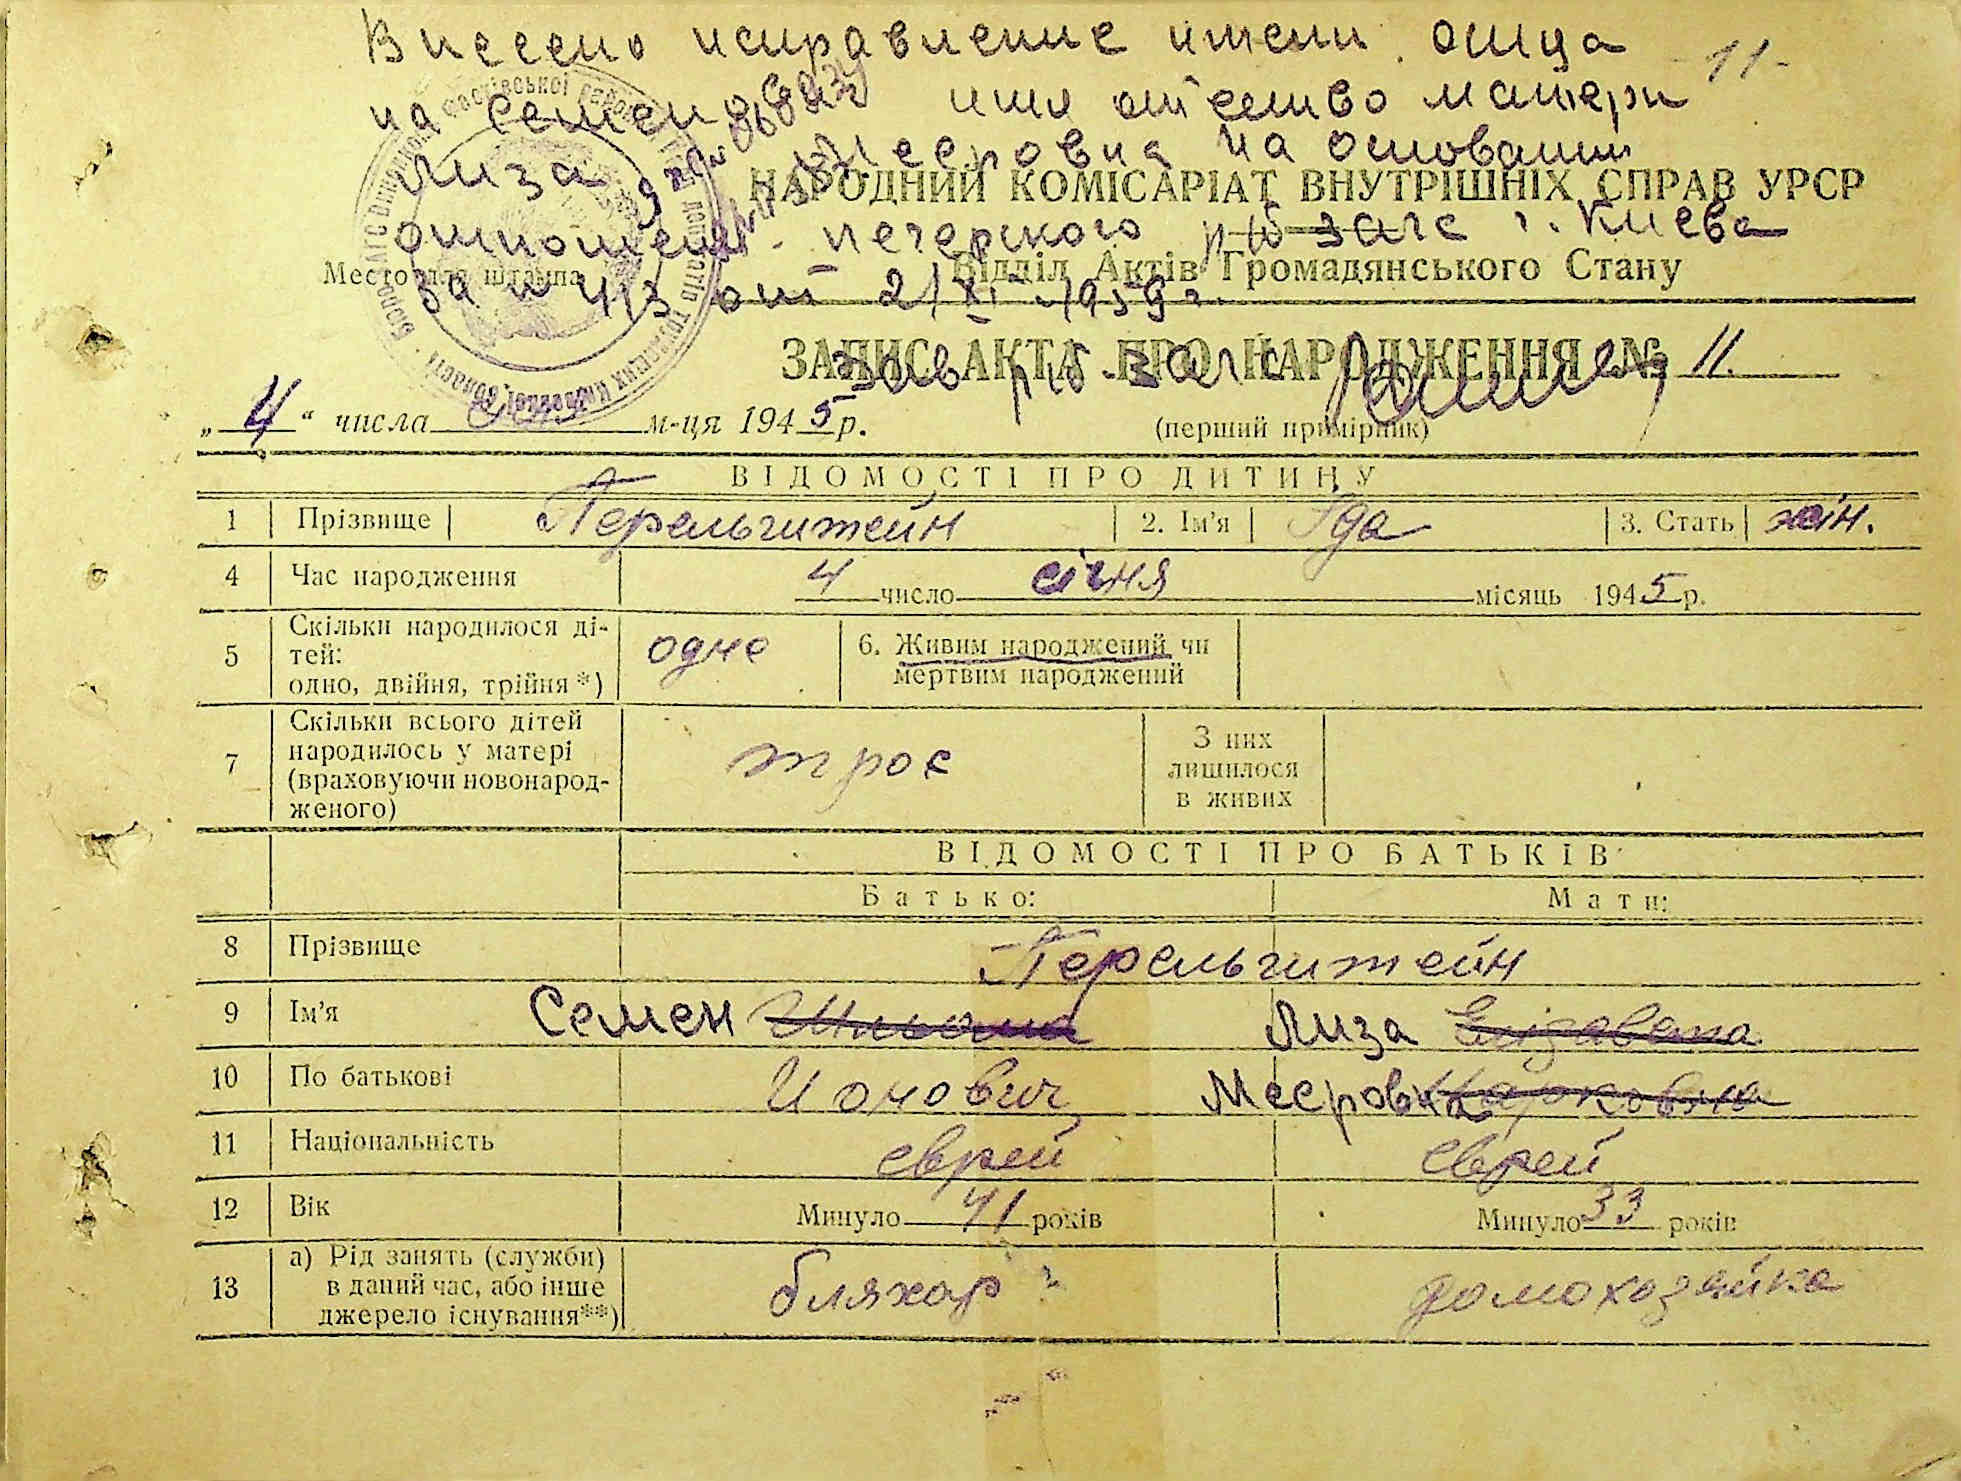 Внесено исправление имени отца
- 11 -
на Семен имя отчество матери
Лиза Меeровна на основании
НАРОДНИЙ КОМІСАРІАТ ВНУТРІШНІХ СПРАВ УРСР
отношен. Печерского р/б загс г. Киева
Место для штампа
Відділ Актів Громадянського Стану
за № 413 от 2/XI 1959 г.
ЗАПИС АКТА ПРО НАРОДЖЕННЯ № 11.
Зав р/б загс
„ 4 “ числа м-ця 1945 р.
(перший примірник)
ВІДОМОСТІ ПРО ДИТИНУ
1 Прізвище Перельчитейн 2. Ім'я Іда 3. Стать жін.
4 Час народження 4 число січня місяць 1945 р.
5 Скільки народилося ді-
тей:
одно, двійня, трійня *) одне 6. Живим народжений чи
мертвим народжений
7 Скільки всього дітей
народилось у матері
(враховуючи новонарод-
женого) троє З них
лишилося
в живих
ВІДОМОСТІ ПРО БАТЬКІВ
Батько: Мати:
8 Прізвище Перельчитейн
9 Ім'я Семен Лиза Єлізавета
10 По батькові Йонович Меeровна Марковна
11 Національність єврей єврей
12 Вік Минуло 41 років Минуло 33 років
13 а) Рід занять (служби)
в даний час, або інше
джерело існування**) бляхар домохозяйка